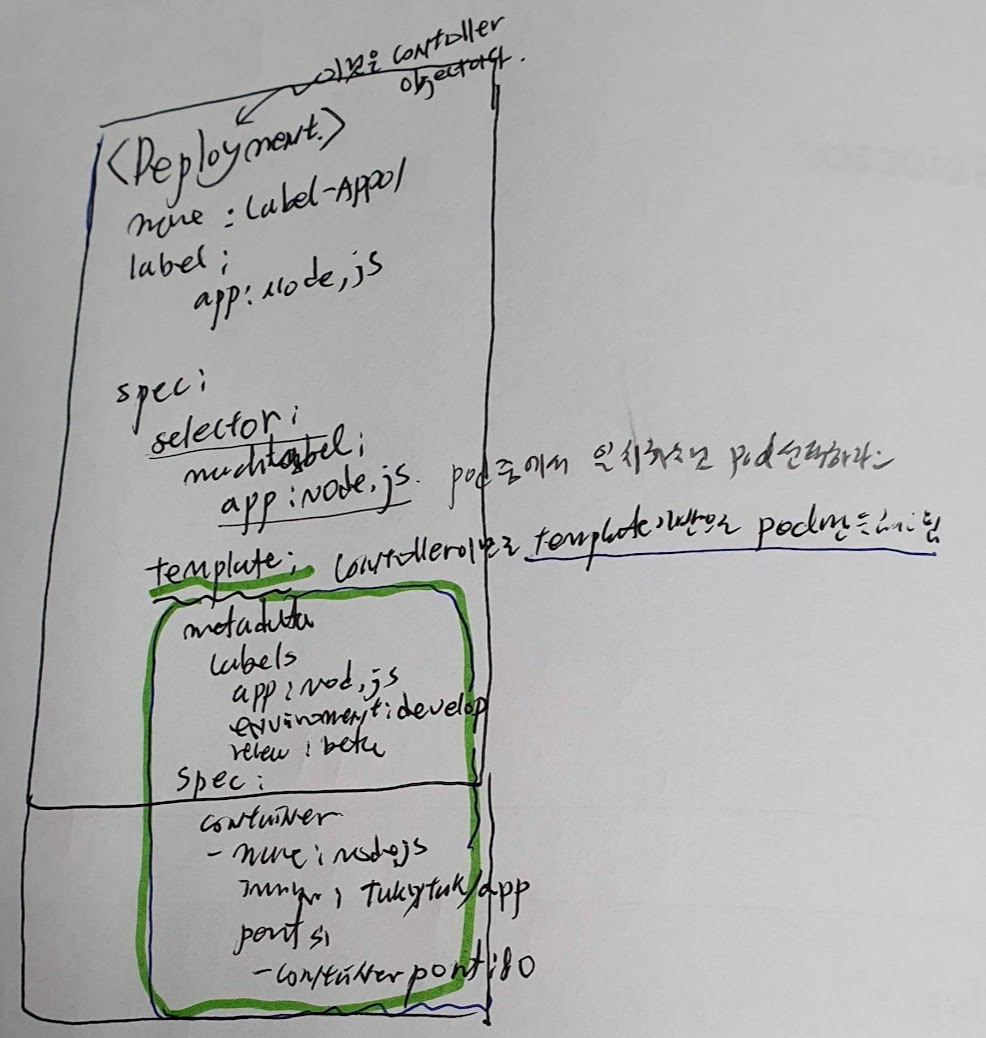 이것은 controller
object이다.
<Deployment.>
name : Label-App01
label ;
app : Node,js
spec ;
selector ;
label ;
app : Node.js. pod 중에서 일치하는 pod 선택하라는
template ; controller이므로 template기반으로 pod만
metadata
labels
app : Nod,js
environment : develop
: beta
spec :
container
- name : nodejs
tukytuk/app
ports
- container port : 80